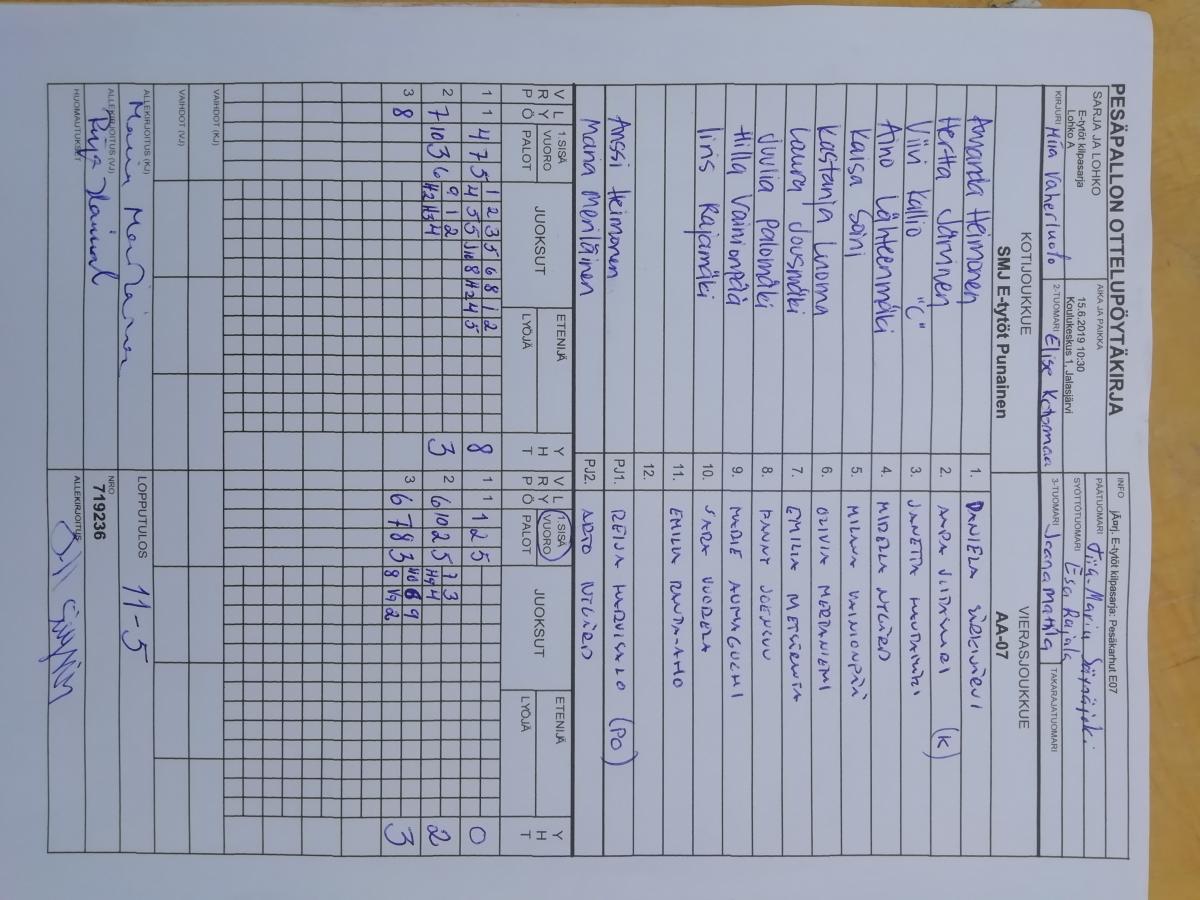 PESÄPALLON OTTELUPÖYTÄKIRJA
INFO jÃ¤rj. E-tytöt kilpasarja: Pesäkarhut E07
SARJA JA LOHKO
E-tytöt kilpasarja
Lohko A
AIKA JA PAIKKA
15.6.2019 10:30
Koulukeskus 1, Jalasjärvi
PÄÄTUOMARI Tiia-Maria
SYÖTTÖTUOMARI Esa Rajala
KIRJURI Miia Vaherluoto
2-TUOMARI Elise
3-TUOMARI Jaana Mattila
TAKARAJATUOMARI
KOTIJOUKKUE
SMJ E-tytöt Punainen
VIERASJOUKKUE
AA-07
Amanda Heimonen 1. DANIELA
Hertta Järvinen 2. (K)
Viivi Kallio "C" 3. JANETTA
Aino Lähteenmäki 4. MIRELLA NYGÅRD
Kaisa Soini 5. MILANA VAINIONPÄÄ
Kastanja Luoma 6. OLIVIA MERTANIEMI
Laura Jousmäki 7. EMILIA
Juulia Palomäki 8.
Hilla Vainionpää 9.
Iiris Rajamäki 10. SARA VUORELA
11. EMILIA RINTA-AHO
12.
Anssi Heimonen PJ1. REIJA HARVISALO (PO)
Maria Meriläinen PJ2. ARTO NYGÅRD
V R P L Y Ö 1.SISÄ VUORO PALOT JUOKSUT ETENIJÄ LYÖJÄ Y H T
V R P L Y Ö 1.SISÄ VUORO PALOT JUOKSUT ETENIJÄ LYÖJÄ Y H T
1 1 4 7 5 1 2 3 5 6 8 1 2 8 1 1 1 2 5 0
4 5 5 J10 8 H2 4 5
2 7 10 3 6 9 1 2 3 2 6 10 2 5 7 3 2
H2 H3 4 H9 4
3 8 3 6 7 8 3 H10 6 9 3
8 1/9 2
VAIHDOT (KJ)
VAIHDOT (VJ)
ALLEKIRJOITUS (KJ) Maria Meriläinen
LOPPUTULOS 11-5
ALLEKIRJOITUS (VJ)
NRO
719236
HUOMAUTUKSET
ALLEKIRJOITUS